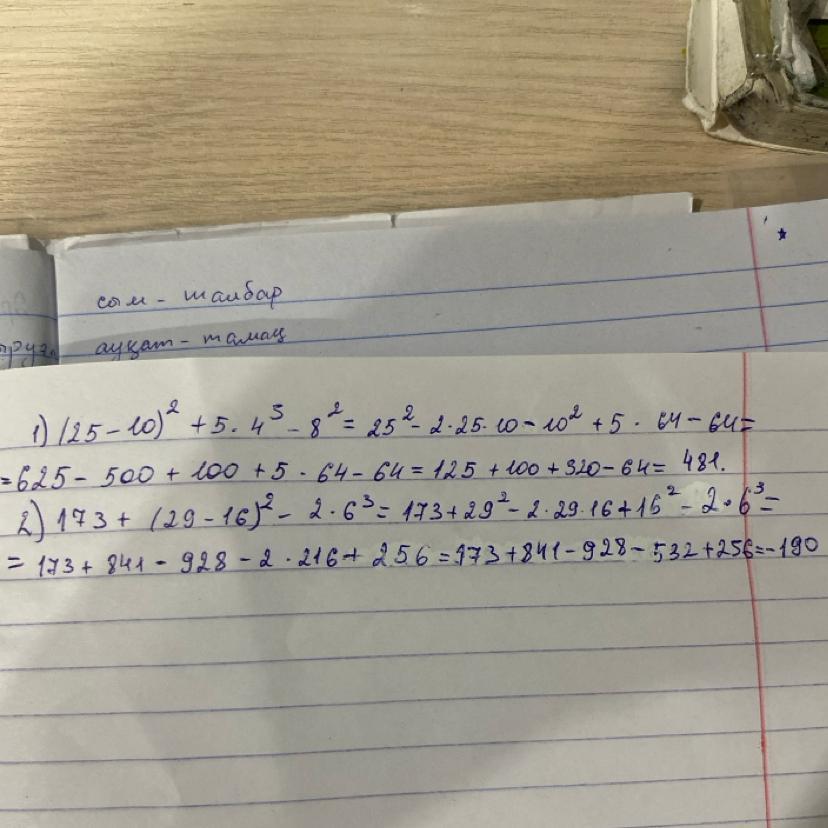 сым - шалбар
ауқат - тамақ
1) (25-10)² + 5·4³ - 8² = 25² - 2·25·10 - 10² + 5 · 64 - 64 =
= 625 - 500 + 100 + 5 · 64 - 64 = 125 + 100 + 320 - 64 = 481.
2) 173 + (29-16)² - 2·6³ = 173 + 29² - 2·29·16 + 16² - 2·6³ =
= 173 + 841 - 928 - 2·216 + 256 = 173 + 841 - 928 - 532 + 256 = -190